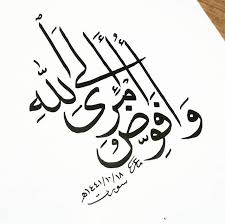 وَأُفَوِّضُ أَمْرِي إِلَى اللَّهِ
١٤٤١/٢/١٨هـ